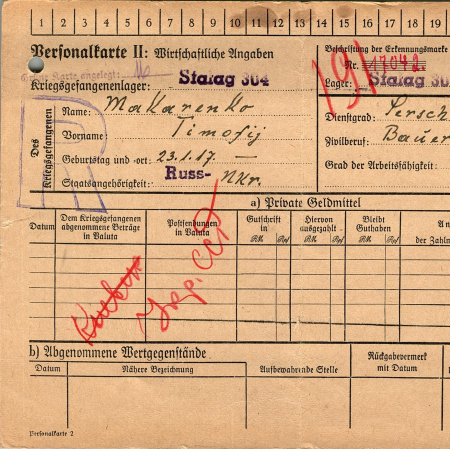 1 2 3 4 5 6 7 8 9 10 11 12 13 14 15 16 17 18 19
Personalkarte II: Wirtschaftliche Angaben
Grüne Karte angelegt:
Kriegsgefangenenlager: Stalag 304
Beschriftung der Erkennungsmarke
Nr. 117042
Lager: Stalag 304
191
Des Kriegsgefangenen
Name: Makarenko
Vorname: Timofij
Geburtstag und -ort: 23.1.17. —
Staatsangehörigkeit: Russ- Ukr.
Dienstgrad:
Zivilberuf: Bauer
Grad der Arbeitsfähigkeit:
a) Private Geldmittel
Datum
Dem Kriegsgefangenen abgenommene Beträge in Valuta
Postsendungen in Valuta
Gutschrift in RM. Rpf
Hiervon ausgezahlt RM. Rpf
Bleibt Guthaben RM. Rpf
der Zahlm
Укр. ССР
b) Abgenommene Wertgegenstände
Datum
Nähere Bezeichnung
Aufbewahrende Stelle
Rückgabevermerk mit Datum
Personalkarte 2